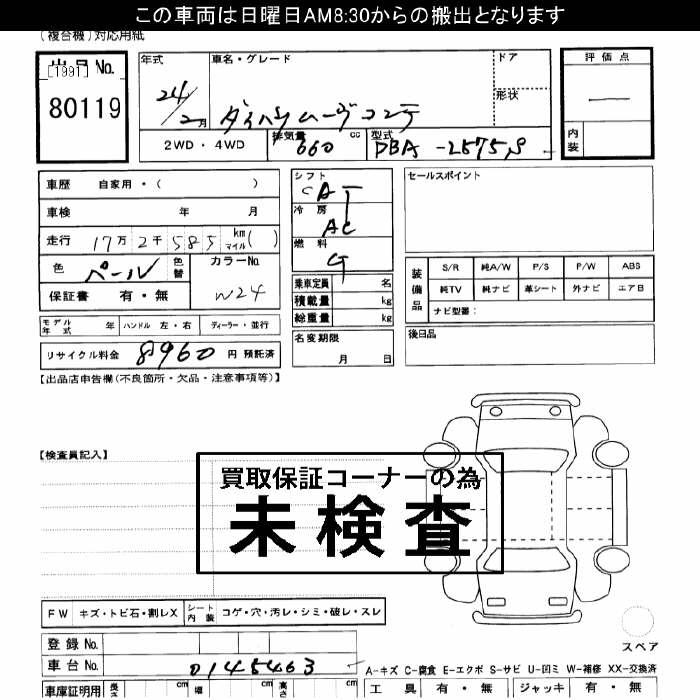 この車両は日曜日AM8:30からの搬出となります
(複合機)対応用紙
[1991] No.
80119
年式 24/2月
車名・グレード
ダイハツムーヴコンテ
ドア
形状
評価点
内装
2WD・4WD
排気量 660 cc
型式 DBA-L575S
車歴 自家用・( )
車検 年 月
走行 17万2千585 km マイル( )
色 パール 色替
カラーNo. W24
保証書 有・無
モデル年式 年 ハンドル 左・右 ディーラー・並行
リサイクル料金 8960 円 預託済
シフト CAT
冷房 AC
燃料 G
乗車定員 名
積載量 kg
総重量 kg
名変期限
月 日
セールスポイント
装備品
S/R 純A/W P/S P/W ABS
純TV 純ナビ 革シート 外ナビ エアB
ナビ型番:
後日品
【出品店申告欄(不良箇所・欠品・注意事項等)】
【検査員記入】
買取保証コーナーの為
未検査
FW キズ・トビ石・割レX シート内装 コゲ・穴・汚レ・シミ・破レ・スレ
スペア
登録No.
車台No. 0145463
A-キズ C-腐食 E-エクボ S-サビ U-凹ミ W-補修 XX-交換済
車庫証明用 長さ cm 幅 cm 高さ cm
工具 有・無 ジャッキ 有・無